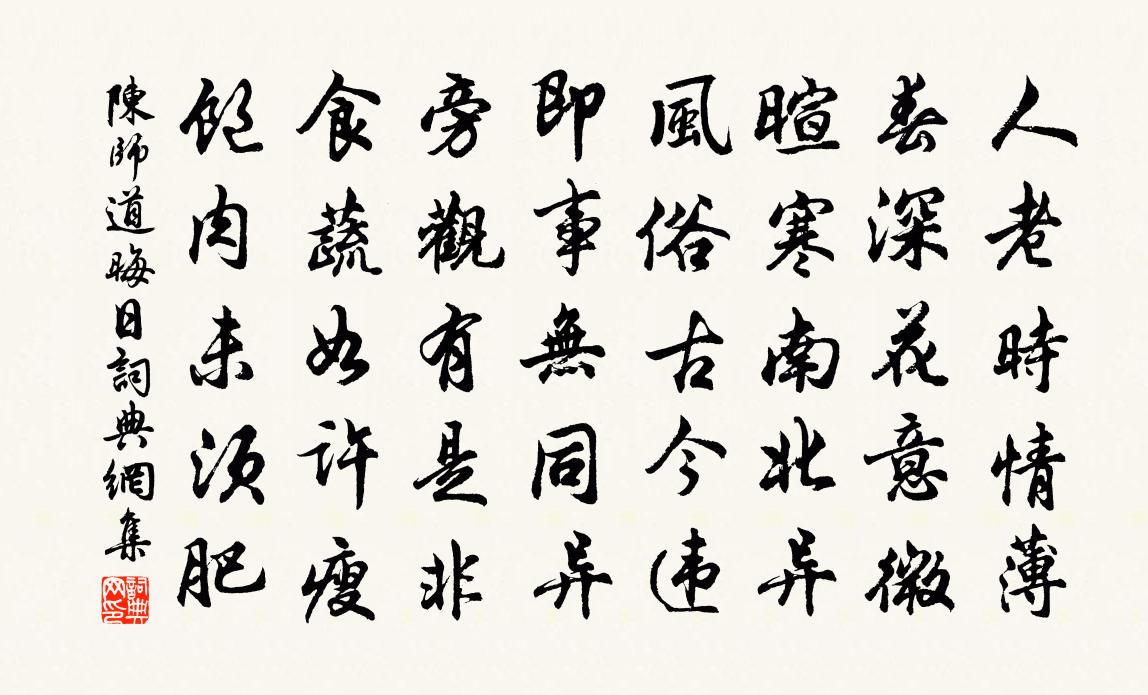 人老時情薄
春深花意微
暄寒南北异
風俗古今違
即事無同异
旁觀有是非
食蔬如許瘦
飽肉未須肥
陳師道晦日詞典網集
詞典网印